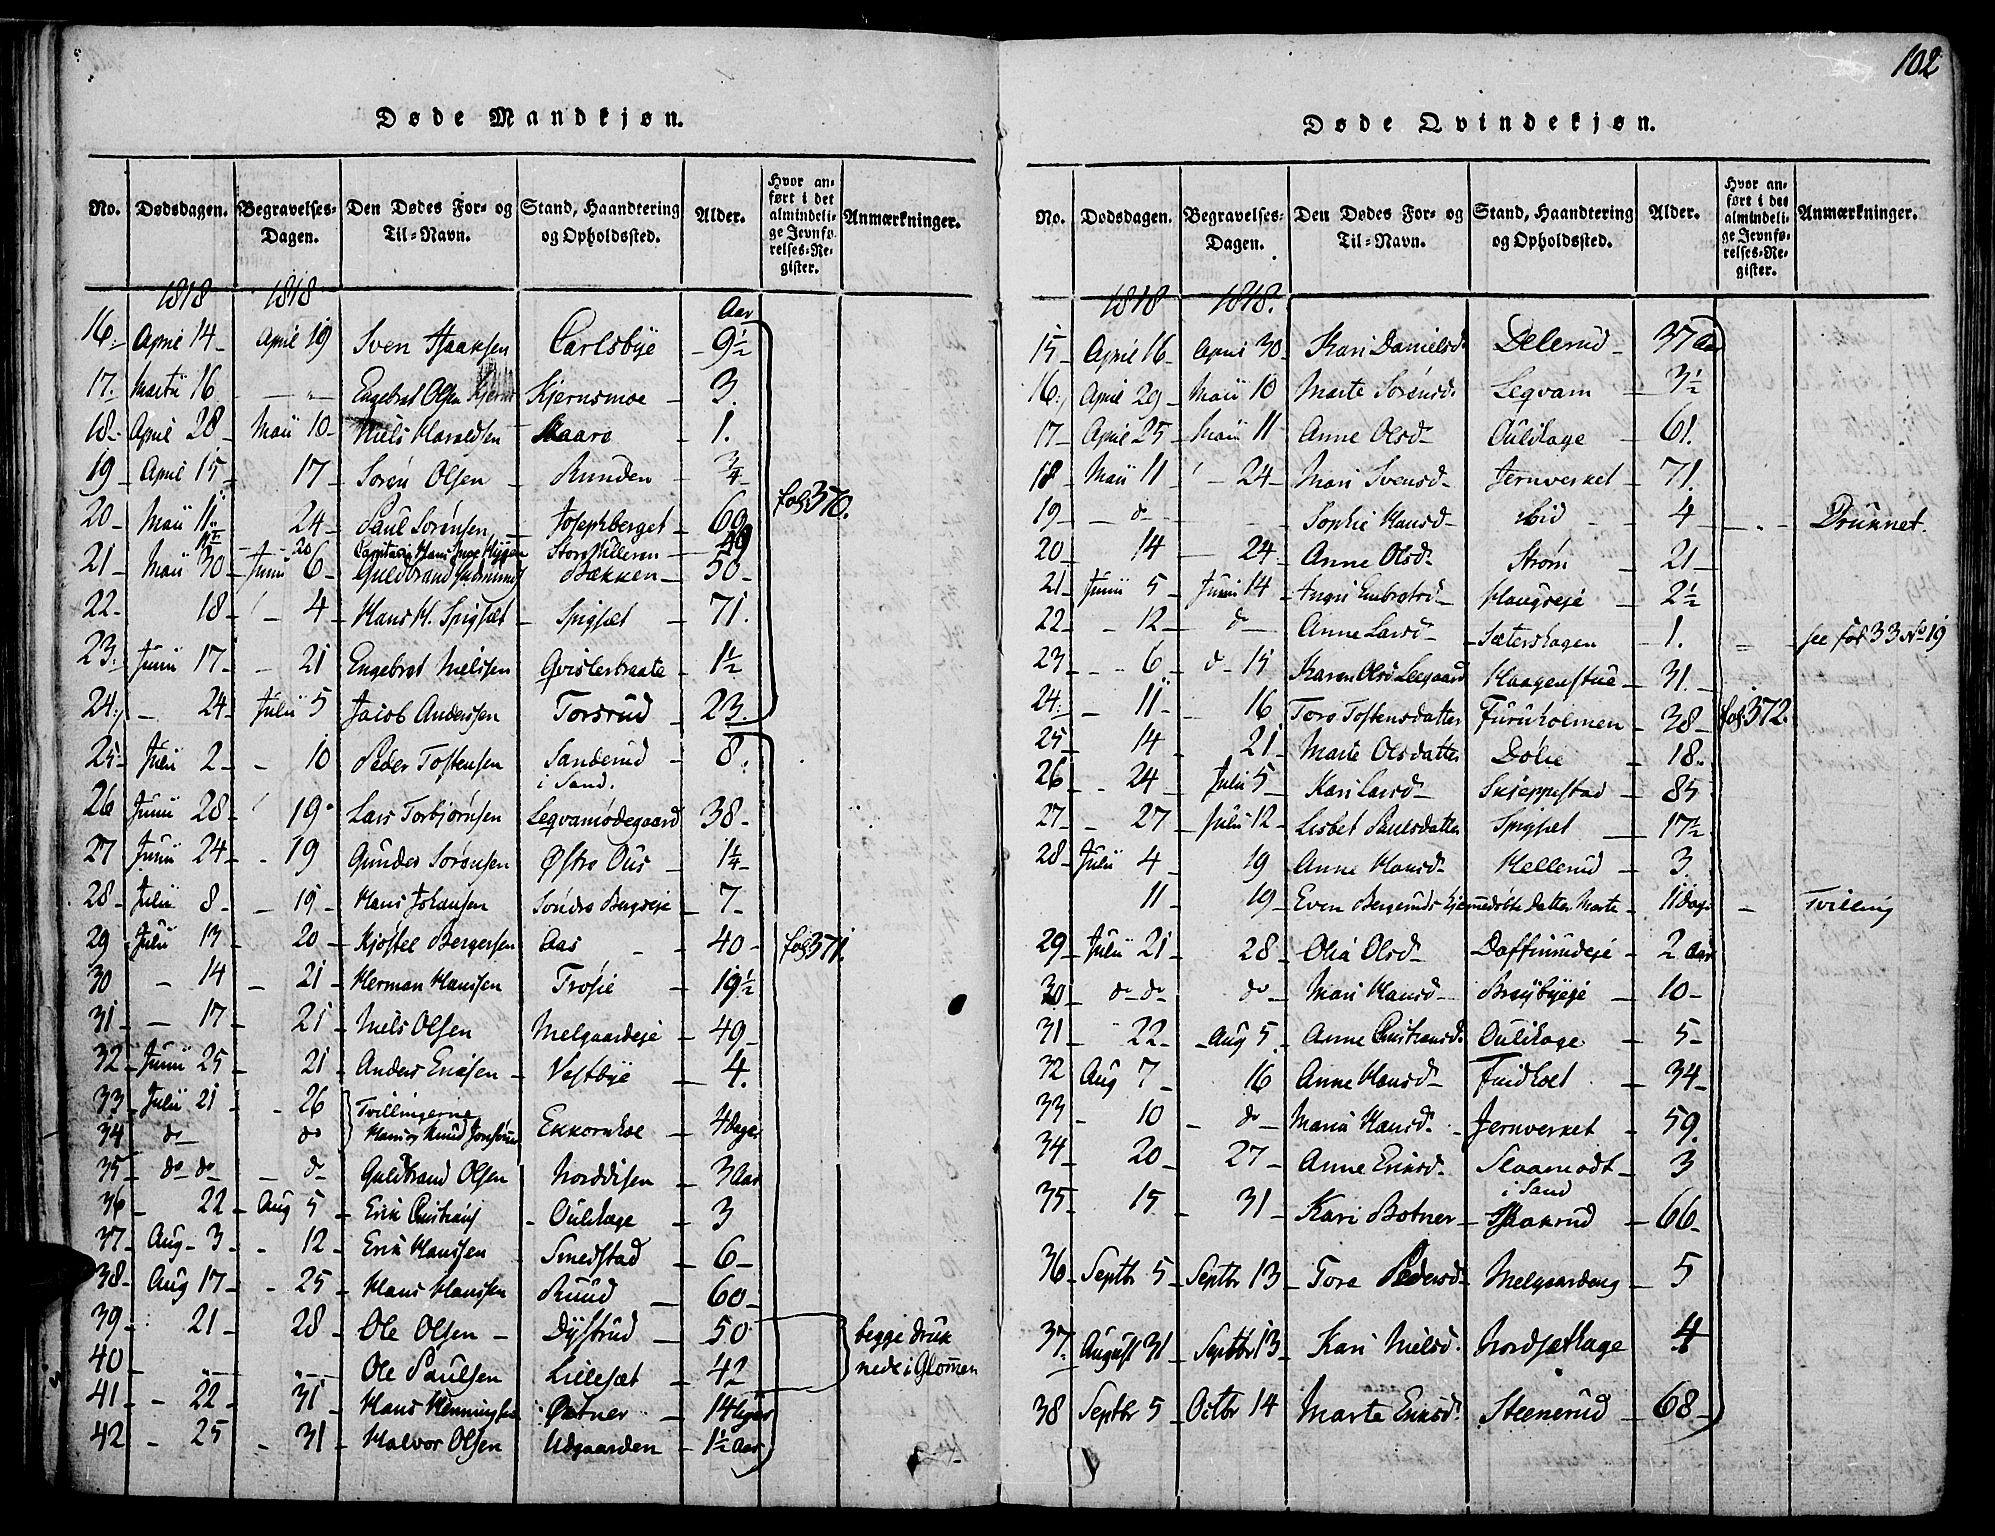 102
Døde Mandkjøn.
No. Dødsdagen. Begravelses-Dagen. Den Dødes For- og Til-Navn. Stand, Haandtering og Opholdssted. Alder. Hvor anført i det almindelige Jevnførelses-Register. Anmærkninger.
1818 1818 Aar
16. April 14 - April 19 Sven Haaksen Carlsbye - 9½
17. Martii 16 - „ - Engebret Olsen Kjernsmoe - 3.
18. April 28 - Maii 10 - Niels Haraldsen Skaare - 1.
19 April 15 - 17 - Soren Olsen - Runden - ¾
20 - Maii 11 24 - Paul Sorensen - Josephberget - 69
21 - Maii 30 - Junii 6 - Guldbrand Bækken - 50 -
22 - 18 - 4 - Hans H. Spigset - Spigset - 71.
23. Junii 17 - - 21 Engebret Nielssen Qvisterbraate - 1½
24. - 24 - Julii 5 Jacob Anderssen Torsrud - 23.
fol 370.
25 - Julii 2 - - 10 Peder Tostensen Sanderud i Sand. - 8.
26 Junii 28 - 19 - Lars Torbjørnsen Leqvamødegaard 38 -
27 Junii 24 - - 19 Gunder Sorensen Østre Ous - 1¼
28 - Julii 8 - - 19 - Hans Johansen Sondre - 7 -
29 Julii 13 - 20 - Kjostel Bergersen Aas - 40 - fol 371.
30 - 14 - 21 - Herman Hanssen Frosie - 19½
31 - - 17 - 21 - Niels Olsen Melgaardeje - 49 -
32 - Junii 25 - 21 Anders Ericsen - Vestbye - 4.
33 - Julii 21 - - 26 Tvillingerne
34 do - do Hans og Knud Ekkornhoe - 4 dage
35 - do do - - do - Guldbrand Olsen Norddisen - 3 Aar
36 - 22 - Aug 5 - Erik Christians - Oulihage - 3
37 - Aug - 3 - - 12 - Erik Hanssen Smedstad - 6 -
38 - Aug 17 - - 25 - Hans Hanssen Ruud - 60 -
39 - 21 - 28 - Ole Olsen - Dystrud - 50 begge druk
40 - „ - „ - Ole Paulsen Lillesæt - 42 nede i Glommen
41 - - 22 - 31 - Hans Henningsen Østner - 14
42 - 25 - 31 - Halvor Olsen Udgaarden - 1½ Aar
Døde Qvindekjøn.
No. Dødsdagen. Begravelses-Dagen. Den Dødes For- og Til-Navn. Stand, Haandtering og Opholdssted. Alder. Hvor anført i det almindelige Jevnførelses-Register. Anmærkninger.
1818 1818.
15 - April 16 - April 30 - Kari Danielsd. Delerud - 37 Aar
16. April 29 - Maii 10 Marte Sorensd. Leqvam - 3½
17 - April 25 - Maii 11 Anne Olsd - Oulihage - 61.
18 - Maii 11 - 24 - Mari Svensd - Jernverket - 71.
19 - - do - - - Sophie Hansd - Lid - 4 - „ - Druknet.
20 - 14 - 24. Anne Olsd - Strøm - 21 -
21 - Junii 5 - Junii 14 - Ingri Embretsd - Haugseje - 2½
22 - - 12 - do - Anne Larsd - Sæterhagen - 1. see fol 33 No 19
23 - - 6 - do 15 Karen Olsd Haagenstue - 31.
24. - 11 - 16 Tore Tostensdatter Furuholmen - 38 - fol 372.
25 - 14 - 21 - Marte Olsdatter Dølie - 18.
26 - - 24 - Julii 5 - Kari Larsd - Skieppestad - 85
27 - - 27 - Julii 12 - Lisbet Paulsdatter Spigset - 17½
28 - Julii 4 - 19 Anne Hansd - Hellerud - 3.
11 - 19 - Even Bergeruds hjemedøbte datter Marte - 11 dage - Tvilling
29 - Julii 21 - 28 - Olia Olsd - Daffinrudeje - 2 Aar
30 - do - do - do - Mari Hansd - Braybyeje - 10 -
31 - 22 - - Aug 5. Anne Christiansd. Oulihage - 5 -
32 Aug 7 - 16 Anne Hansd - Fuidhoet - 34 -
33 - 10 - do - Maria Hansd. - Jernverket - 59.
34 - 20 - 27 - Anne Ericsd - Slaamodt - 3
35 - 15 - 31 - Kari Botner - i Sand Haakrud - 66 -
36 - Septbr 5 - Septbr 13 - Tore Pedersd - Melgaardeng - 5
37 - August 31 - Septbr 13 - Kari Nielsd. Nordsethage 4
38 Septbr 5 - Octbr 14 Marte Ericsd. Steenerud - 68 -